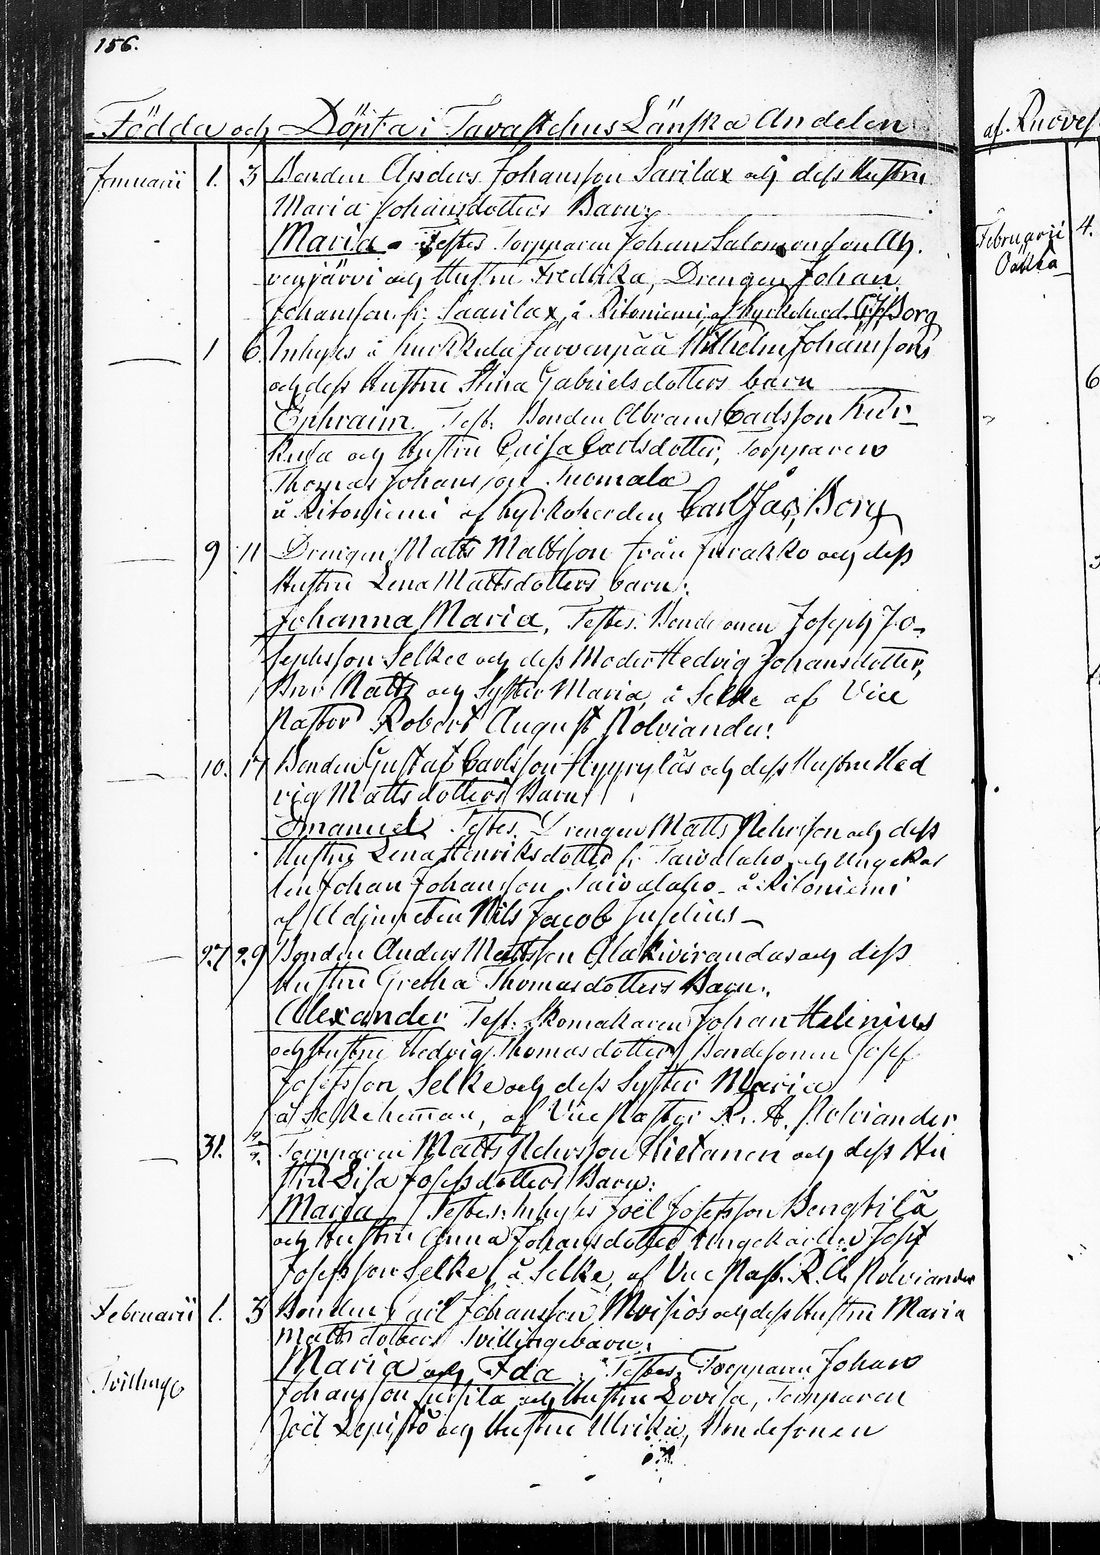 156.
Födda och Döpta i Tavastehus Länska Andelen
af Ruoves
Januarii 1. 3 Bonden Anders Johansson Sarilax och dess Hustru
Maria Johansdotters Barn:
Maria. Testes Torpparen Johan Salomonsson Ah,
venjärvi och Hustru Fredrika, Drengen Johan
Johansson fr: Saarilax, å Ritoniemi af Kyrkoherd. C J Borg
— 1 6. Inhyses å Kurkkula Jurvenpää Wilhelm Johanssons
och dess Hustru Stina Gabrielsdotters barn
Ephraim. Test: Bonden Abram Carlsson Kur-
kula och Hustru Caisa Carlsdotter, Torpparen
Thomas Johansson Tuomala
å Ritoniemi af kyrkoherden Carl Jac. Borg
— 9 11 Drengen Matts Mattsson från Jurakko och dess
Hustru Lena Mattsdotters barn:
Johanna Maria, Testes: Bondesonen Joseph Jo-
sephsson Selkee och dess Moder Hedvig Johansdotter,
Bror Matts och Syster Maria, å Selke af Vice
Pastor Robert August Polviander.
— 10. 17 Bonden Gustaf Carlsson Hyyryläs och dess Hustru Hed
vig Mattsdotters Barn
Emanuel. Testes. Drengen Matts Pehrsson och dess
Hustru Lena Henriksdotter fr: Taivalaho och Ungekar
len Johan Johansson Taivalaho å Ritoniemi
af Adjuncten Nils Jacob Juselius —
— 27 29 Bonden Anders Mattsson Alakivirandas och dess
Hustru Gretha Thomasdotters Barn:
Alexander Test: Skomakaren Johan Helenius
och Hustru Hedvig Thomasdotter, Bondesonen Josef
Josefsson Selke och dess Syster Maria
å Selke hemman, af Vice Pastor R. A. Polviander
— 31. 2/2. Torpparen Matts Pehrsson Hietanen och dess Hu
stru Lisa Josefsdotters Barn:
Maria Testes: Inhyses Joël Josefsson Bengtilä
och Hustru Anna Johansdotter Ungekarlen Josef
Josefsson Selke, å Selke, af Vice Past. R. A. Polviander
Februarii 1. 3 Bonden Carl Johansson Moisios och dess Hustru Maria
Mattsdotters Tvillingebarn:
Maria och Ida. Testes. Torpparen Johan
Tvillingo
Johansson Jussila och Hustru Lovisa, Torpparen
Joël Lepistö och Hustru Ulrika, Bondesonen
Februarii 4.
Oäkta
6